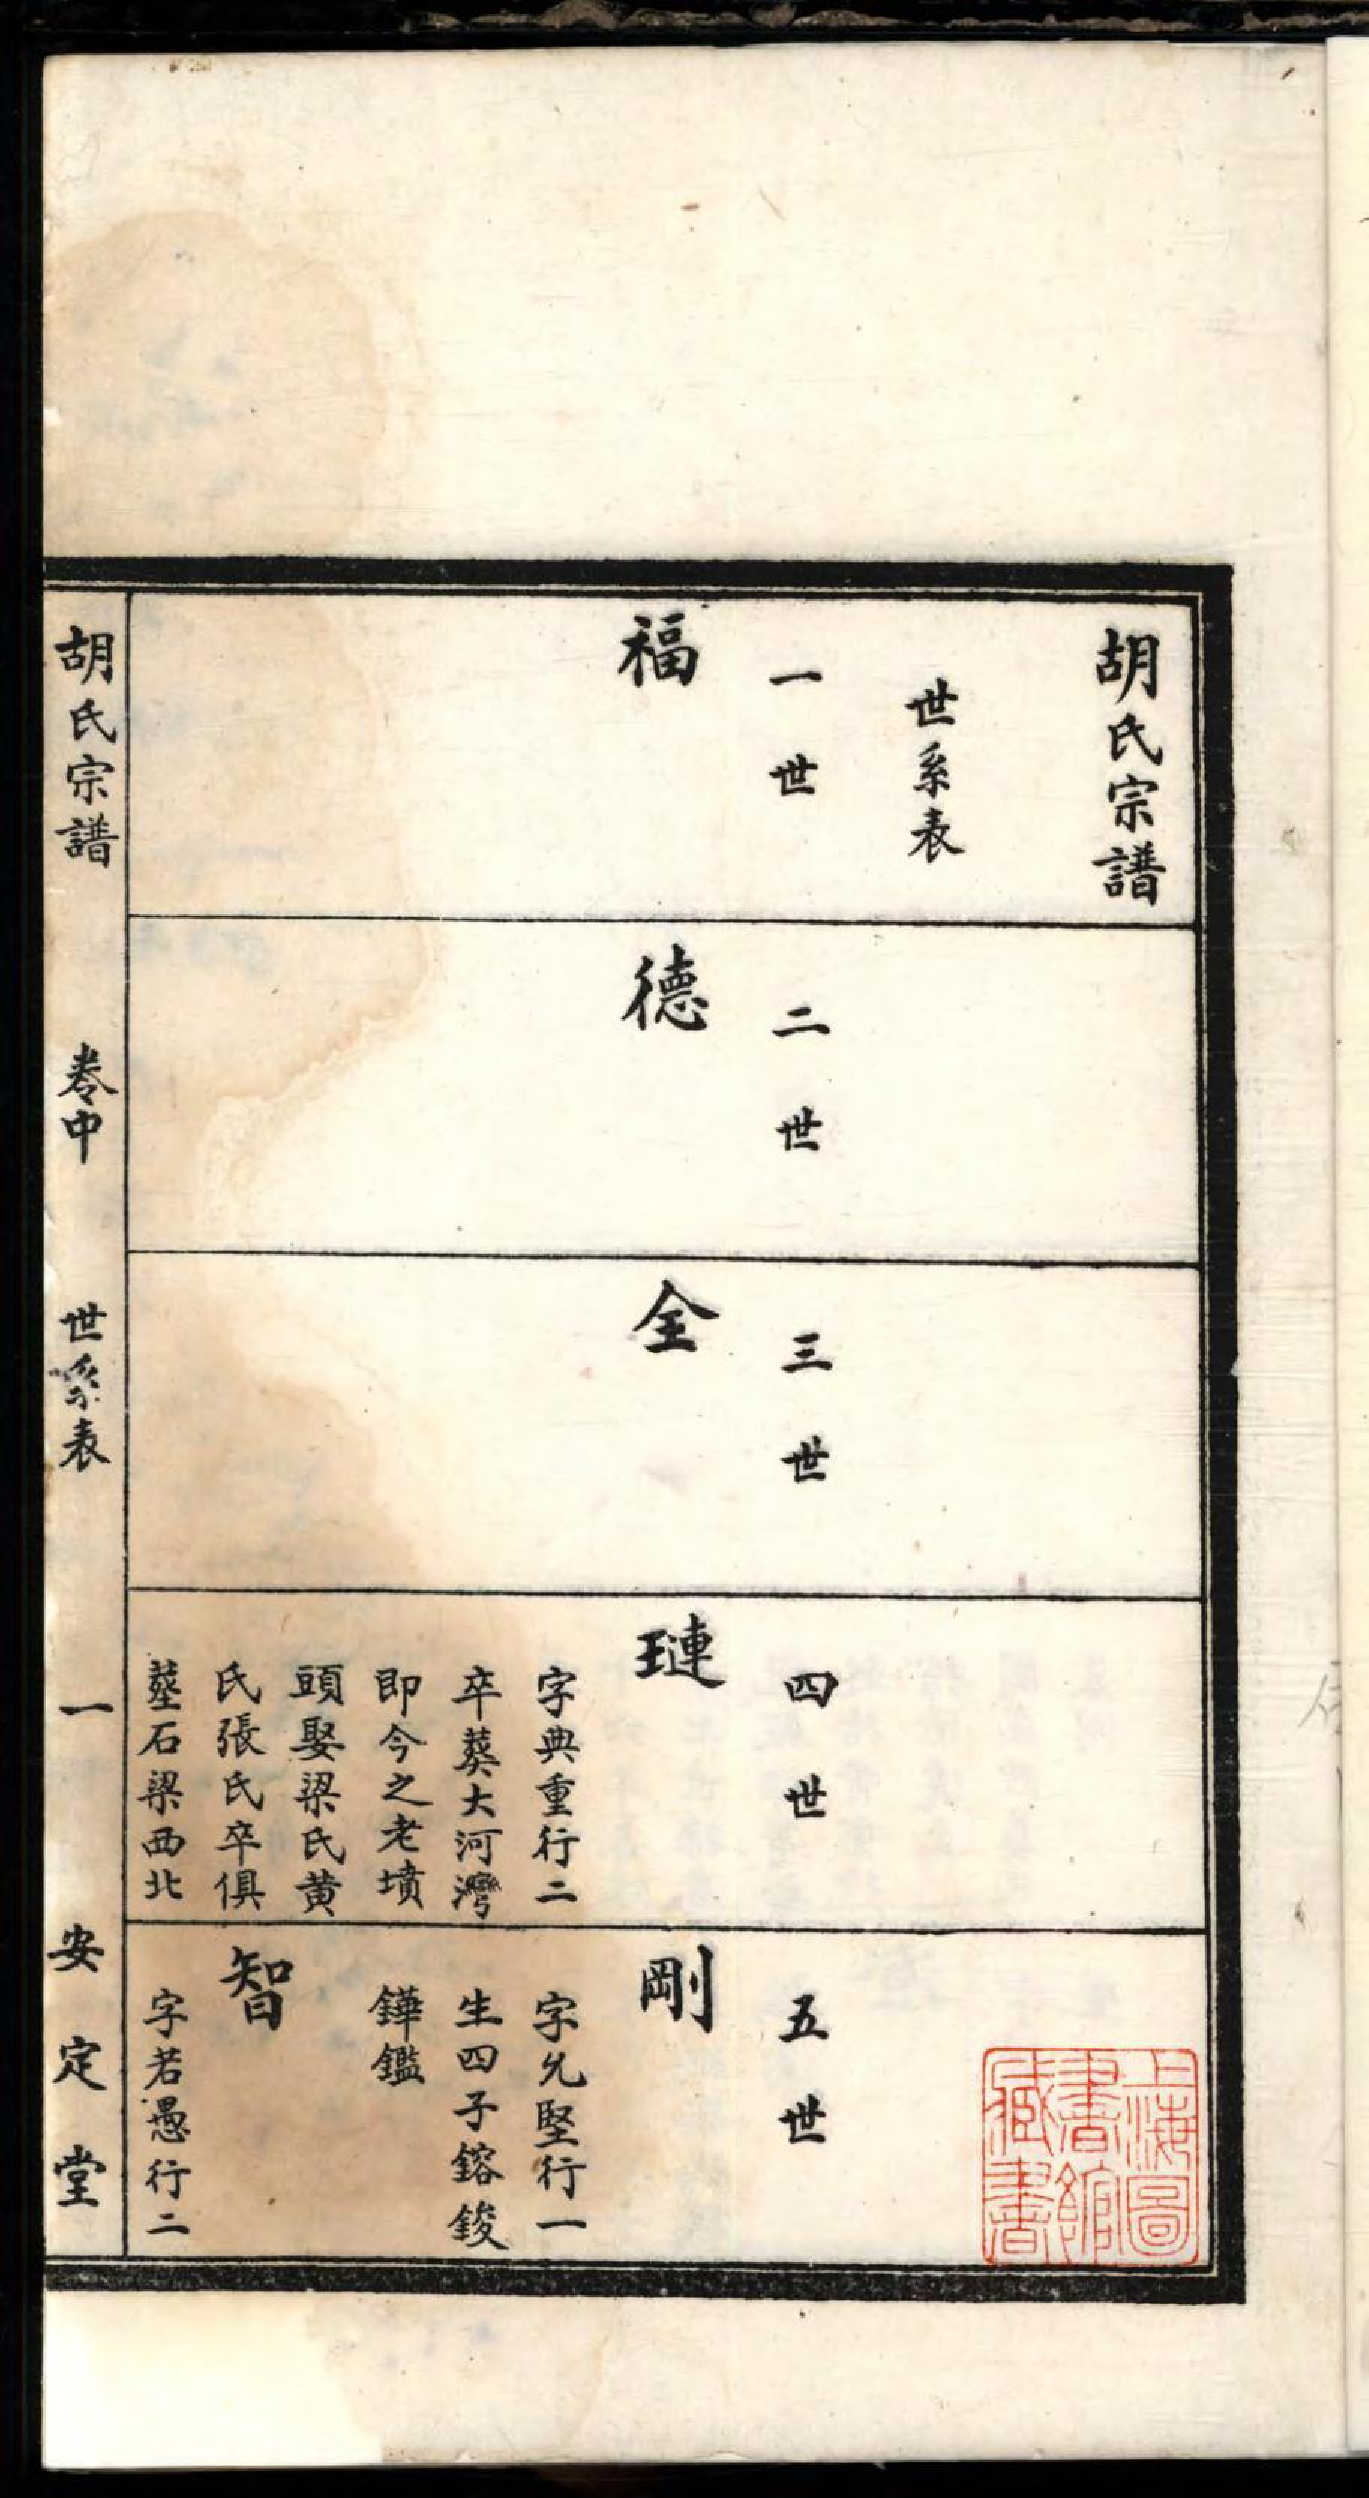 胡氏宗譜
世系表
一世
福
二世
德
三世
全
四世
璉
字典重行二
卒葬大河灣
即今之老墳
頭娶梁氏黄
氏張氏卒俱
塟石梁西北
五世
剛
字允堅行一
生四子鎔鋑
鏵鑑
智
字若愚行二
胡氏宗譜 卷中 世系表 一 安定堂
上海圖
書館
藏書